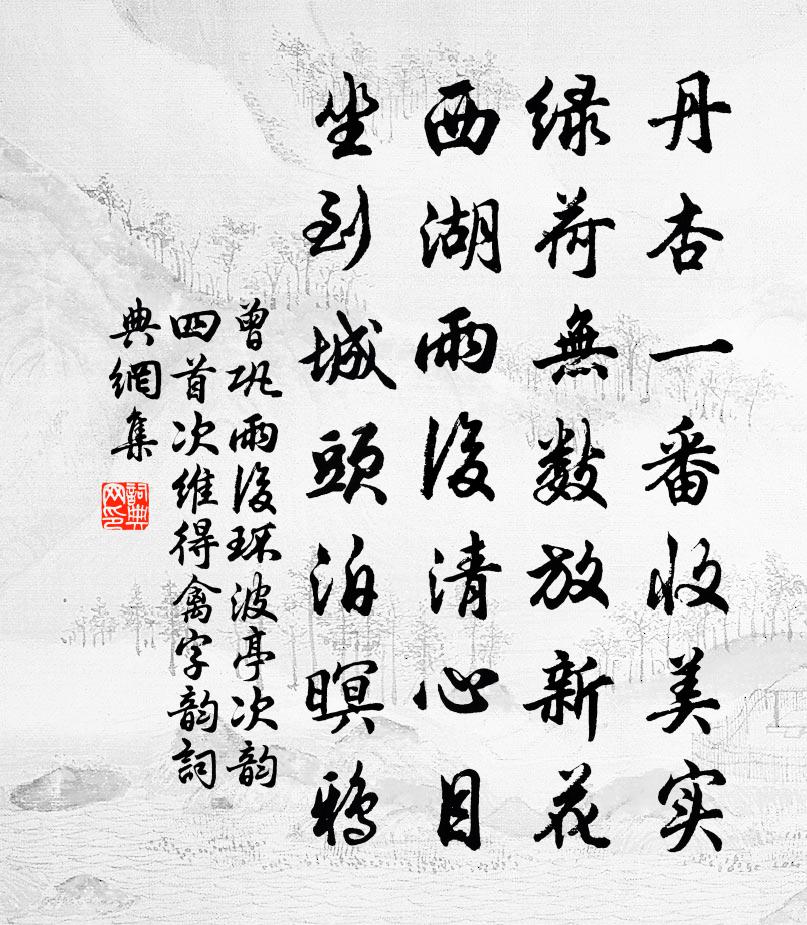 丹杏一番收美实
绿荷無数放新花
西湖雨後清心目
坐到城頭泊暝鴉
曾巩雨後环波亭次韵
四首次维得禽字韵詞
典網集
詞典
网印